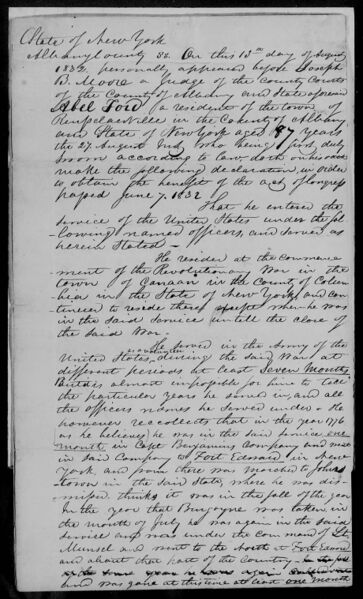 State of New York
Albany County SS. On this 13th day of August
1832 personally appeared before Joseph
B. Moore a Judge of the County Courts
of the County of Albany and State aforesaid
Abel Ford a resident of the town of
Rensselaerville in the County of Albany
and State of New York aged 87 years
the 27 August Inst who being first duly
sworn according to law doth on his oath
make the following declaration in order
to obtain the benefit of the act of Congress
passed June 7. 1832
That he entered the
service of the United States under the fol
-lowing named officers and served as
herein stated —
He resided at the commence
ment of the Revolutionary War in the
town of Canaan in the County of Colum
bia in the State of New York and con
tinued to reside there except when he was
in the said service untill the close of
the said War.
He served in the Army of the
United States as a volunteer during the said War at
different periods at least Seven Months
But is almost impossible for him to tell
the particular years he served in, and all
the officers names he served under. He
however recollects that in the year 1776
as he believes he was in the said service one
month in Capt Benjamins Company and was
in said Company to Fort Edward in New
York and from there was marched to Johns
town in the said State where he was dis-
missed thinks it was in the fall of the year
In the year that Burgoyne was taken in
the month of July he was again in the said
service and was under the command of Lt
Munsel and went to the North at Fort Edward
and about that part of the Country
the same year he was again
and was gone at this time at least one month